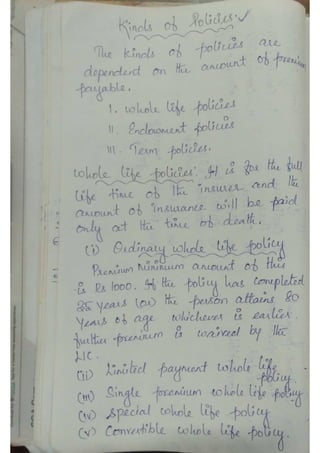 Kinds of Policies:
The kinds of policies are
dependent on the amount of premium
payable.
I. whole life policies
II. Endowment policies
III. Term policies.
Whole life policies: It is for the full
life time of the insurer and the
amount of insurance will be paid
only at the time of death.
(i) Ordinary whole life policy
Premium minimum amount of this
is Rs 1000. If the policy has completed
35 years (or) the person attains 80
years of age whichever is earlier.
further premium is waived by the
LIC.
(ii) Limited payment whole life
policy.
(iii) Single premium whole life policy
(iv) special whole life policy
(v) Convertible whole life policy.